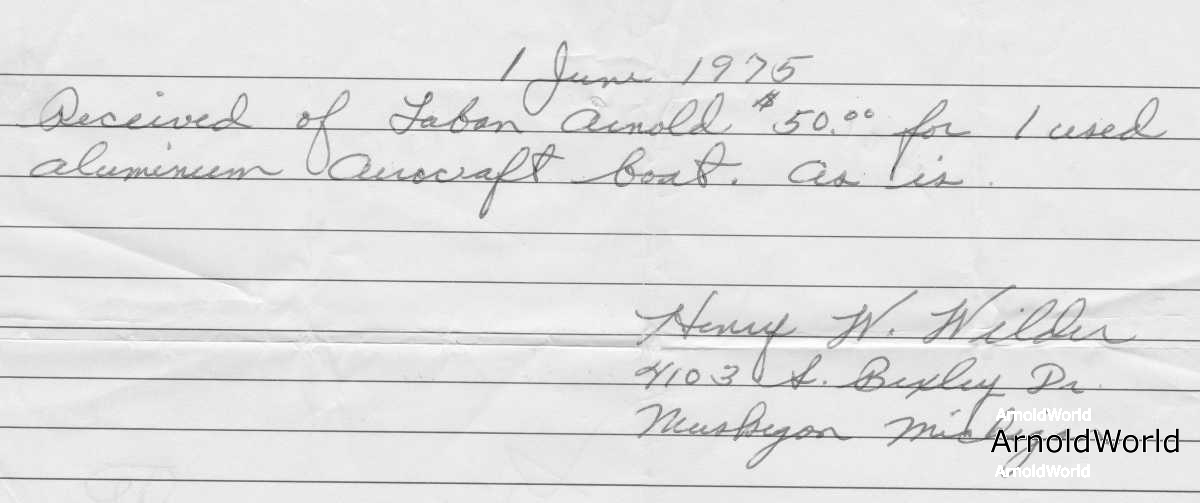 1 June 1975
Received of Laban Arnold $50.00 for 1 used
aluminum Aerocraft boat. as is.
Henry W. Wilder
4103 S. Bexley Dr.
Muskegon Michigan
ArnoldWorld
ArnoldWorld
ArnoldWorld